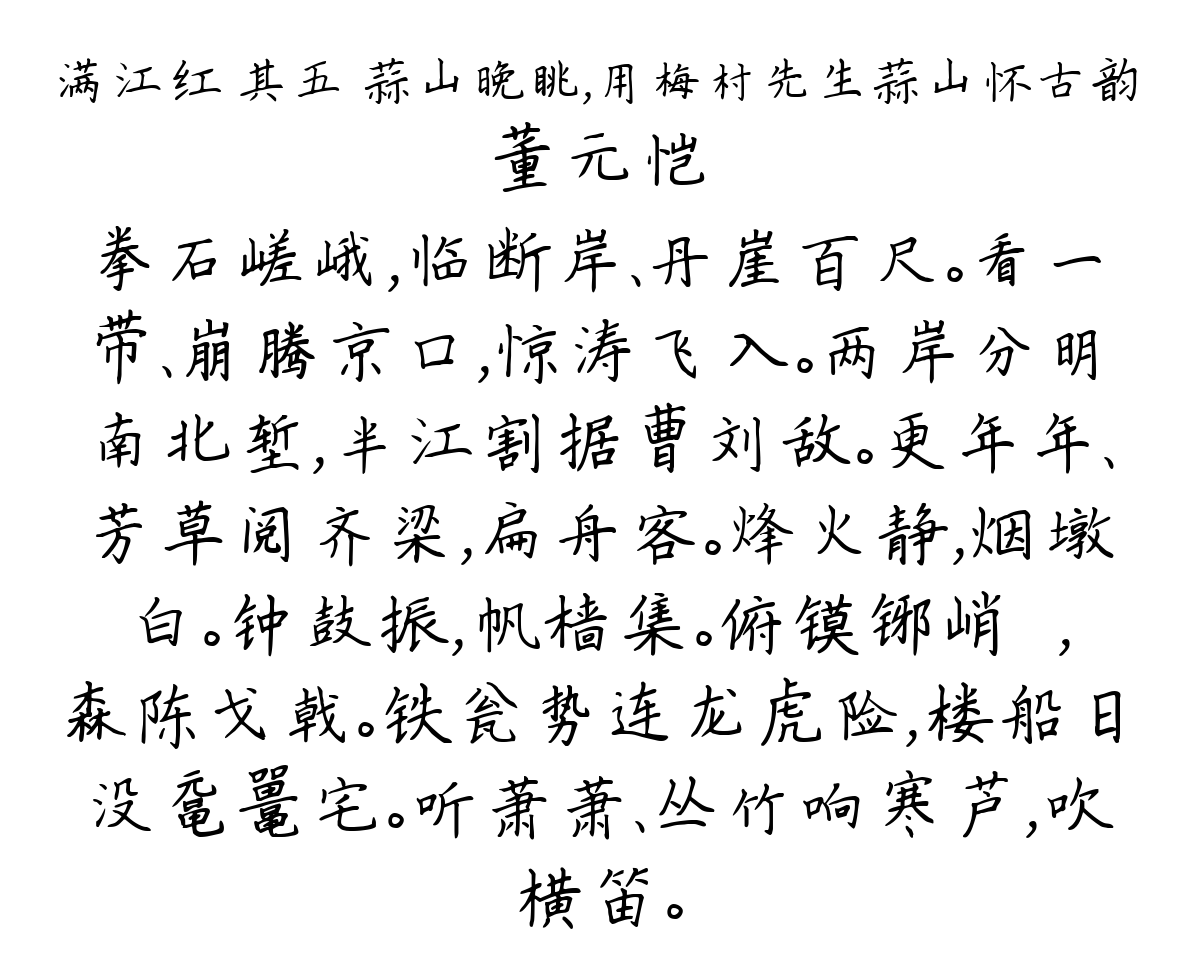 满江红 其五 蒜山晚眺,用梅村先生蒜山怀古韵
董元恺
拳石嵯峨,临断岸、丹崖百尺。看一
带、崩腾京口,惊涛飞入。两岸分明
南北堑,半江割据曹刘敌。更年年、
芳草阅齐梁,扁舟客。烽火静,烟墩
白。钟鼓振,帆樯集。俯镆铘峭 ,
森陈戈戟。铁瓮势连龙虎险,楼船日
没鼋鼍宅。听萧萧、丛竹响寒芦,吹
横笛。